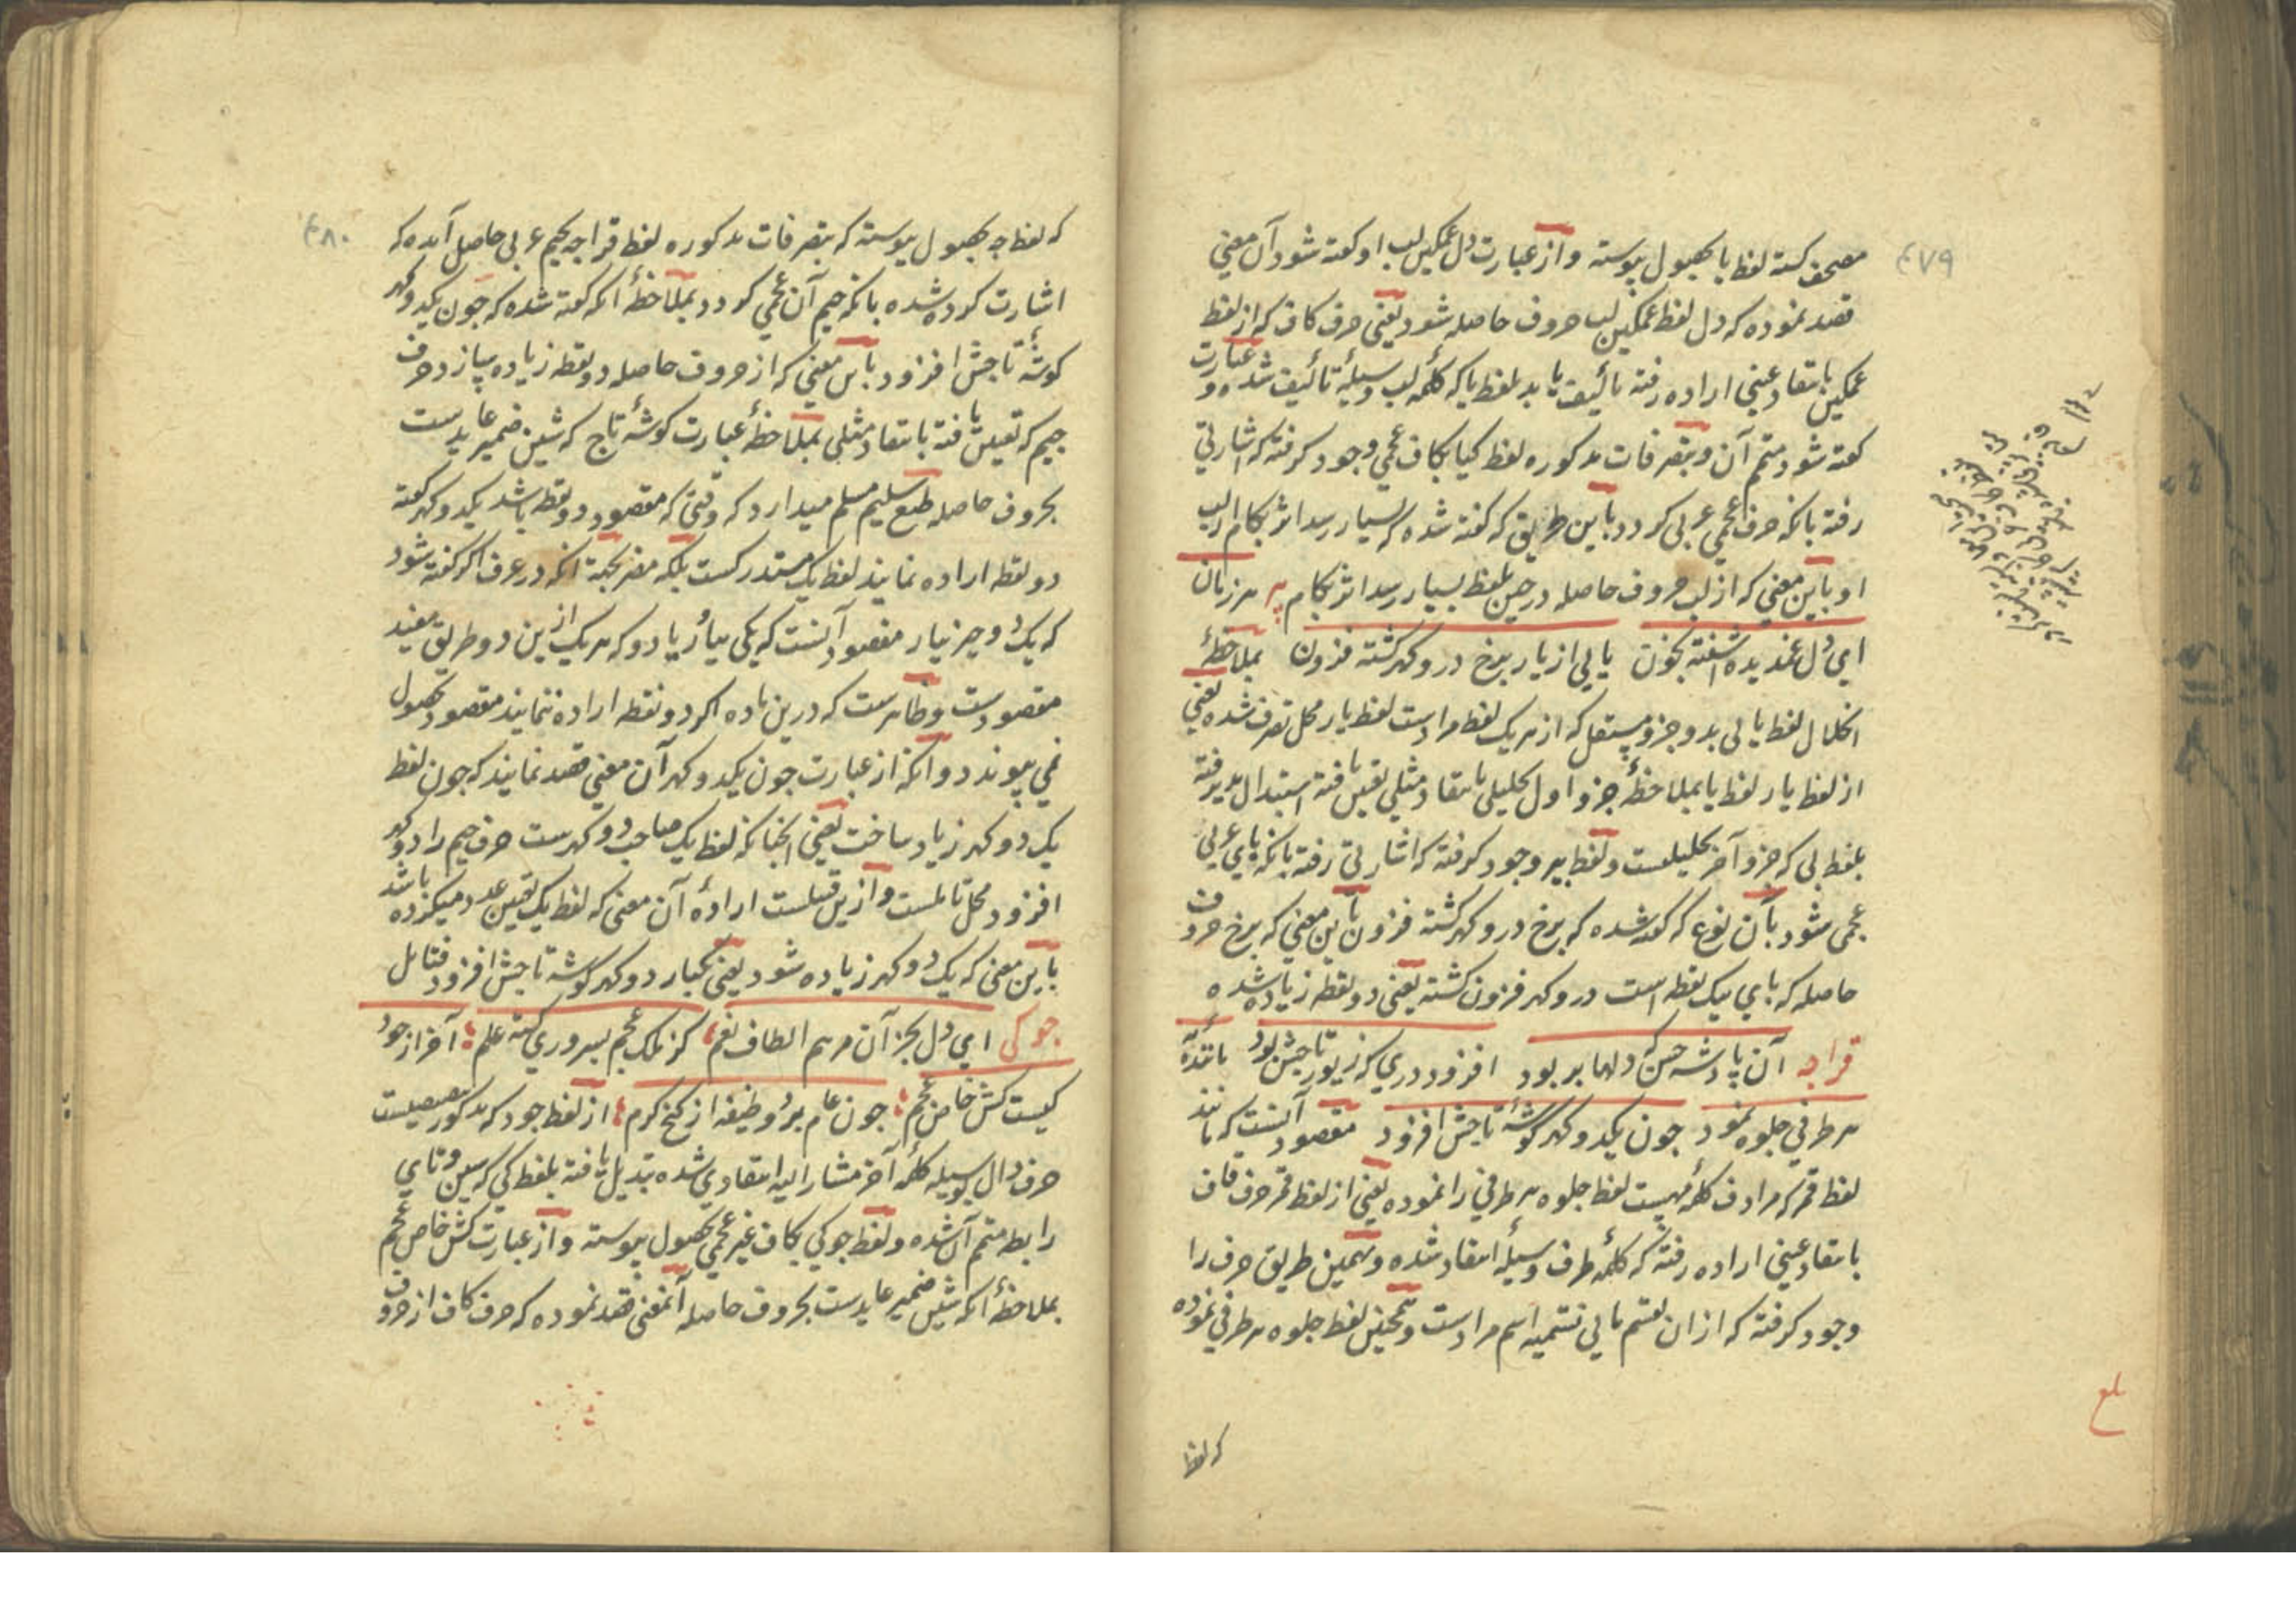 ۴۷۹
مصحف کشته لفظ با بحصول پیوسته و از عبارت دل غمگین لب او کفته شود آن معنی
قصد نموده که دل لفظ غمگین لب حروف حاصله شود یعنی حرف کاف که از لفظ
غمگین بانتقاد عینی اراده رفته تألیف یابد بلفظ یا که کلمه لب وسیله تألیف شده و عبارت
کفته شود متمم آن و بتصرفات مذکوره لفظ کیا بکاف عجمی وجود کرفته که اشارتی
رفته بانکه حرف عجمی عربی کردد باین طریق که کفته شده که بسیار رسد اثر بکام از لب
او باین معنی که از لب حروف حاصله در حین تلفظ بسیار رسد اثر بکام پیر هر زبان
ای دل غمدیده آشفته بخون یابی از یار برخ در و کهر کشته فزون بملاحظهٔ
انحلال لفظ یابی بدو جزو مستقل که از هر یک لفظ مرادست لفظ یار محل تصرف شده یعنی
از لفظ یار لفظ یا بملاحظهٔ جزو اول تحلیلی بانتقاد مثلی تعیین یافته استبدال پذیرفته
بلفظ بی که جزو آخر تحلیلیست و لفظ بیر وجود کرفته که اشارتی رفته بانکه بای عربی
عجمی شود بآن نوع که کفته شده که برخ در و کهر کشته فزون باین معنی که برخ حروف
حاصله که بای یک نقطه است در و کهر فزون کشته یعنی دو نقطه زیاده شده
قراجه آن پادشه حسن که دلها بربود افزود دری که زیور تاجش بود تا بندهٔ
هر طرفی جلوه نمود چون یکدو کهر کوشهٔ تاجش افزود مقصود آنست که مانند
لفظ قمر که مرادف کلمهٔ مهست لفظ جلوه هر طرفی را نموده یعنی از لفظ قمر حرف قاف
بانتقاد عینی اراده رفته که کلمهٔ طرف وسیلهٔ انتقاد شده و بهمین طریق حرف را
وجود کرفته که از ان بقسم ثانی تسمیه اسم مرادست و همچنین لفظ جلوه هر طرفی نموده
که لفظ
۴۸۰
که لفظ جه بحصول پیوسته که بتصرفات مذکوره لفظ قراجه بجیم عربی حاصل آمده که
اشارت کرده شده بانکه جیم آن عجمی کردد بملاحظهٔ انکه کفته شده که چون یکدو کهر
کوشهٔ تاجش افزود باین معنی که از حروف حاصله دو نقطه زیاده سازد حرف
جیم که تعیین یافته بانتقاد مثلی بملاحظهٔ عبارت کوشهٔ تاج که شین ضمیر عایدست
بحروف حاصله طبع سلیم مسلم میدارد که وقتی که مقصود دو نقطه باشد یکدو کهر کفته
دو نقطه اراده نمایند لفظ یک مستدرکست بلکه مضر بجهة انکه در عرف اکر کفته شود
که یک دو چیز بیار مقصود آنست که یکی بیار یا دو که هر یک ازین دو طریق مفید
مقصودست و ظاهرست که درین ماده اکر دو نقطه اراده ننمایند مقصود بحصول
نمی پیوندد و انکه از عبارت چون یکدو کهر آن معنی قصد نمایند که چون لفظ
یک دو کهر زیاد ساخت یعنی انچنانکه لفظ یک صاحب دو کهرست حرف جیم را دو کهر
افزود محل تاملست و ازین قبیلست ارادهٔ آن معنی که لفظ یک تعیین عدد میکرده باشد
باین معنی که یک دو کهر زیاده شود یعنی یکبار دو کهر کوشه تاجش افزود فتامل
جوکی ای دل بجز آن مرهم الطاف نعم کز ملک عجم بسروری کشته علم آخر از جود
کیست کش خاص عجم چون عام برد وظیفه از کنج کرم از لفظ جود که مذکور
حرف دال بوسیله کلمهٔ آخر مشار الیه انتقادی شده تبدیل یافته بلفظ کی که سین و تای
رابطه متمم آن شده و لفظ جوکی بکاف غیر عجمی بحصول پیوسته و از عبارت کش خاص عجم
بملاحظهٔ انکه شین ضمیر عایدست بحروف حاصله آنمعنی قصد نموده که حرف کاف از حروف